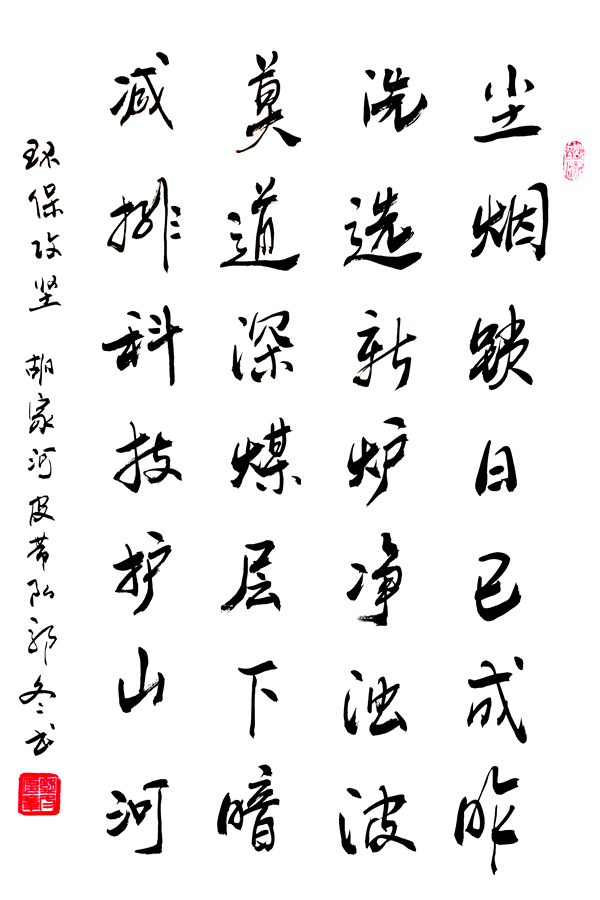 尘烟锁日已成昨
洗选新炉净浊波
莫道深煤层下暗
减排科技护山河
环保攻坚 胡家河皮带队郭冬书